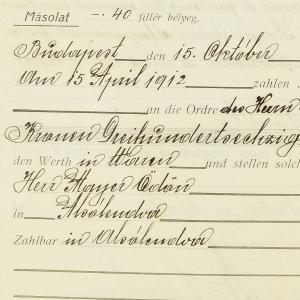 Másolat -. 40 fillér bélyeg.
Budapest den 15. Október
Am 15 April 1912 zahlen
an die Ordre des Herrn
Kronen Dreihundertsechzig
den Werth in Waren und stellen solch
Herr Mayer Ödön
in Alsólendva
Zahlbar in Alsólendva